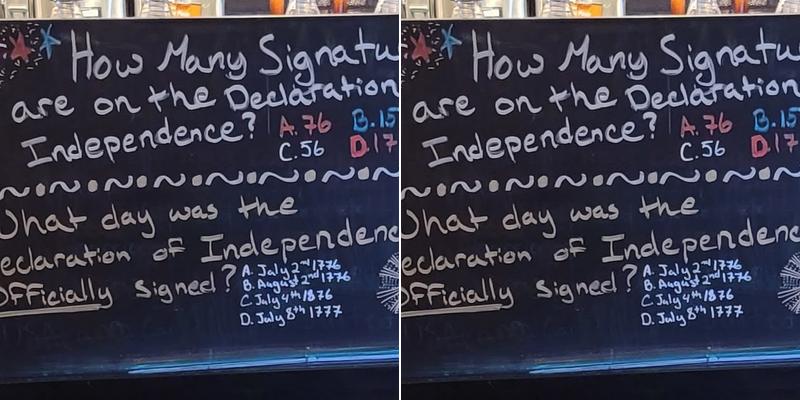 How Many Signatu
are on the Declaration
Independence?
A. 76 B. 15
C. 56 D. 17
What day was the
eclaration of Independenc
Officially signed?
A. July 2nd 1776
B. August 2nd 1776
C. July 4th 1876
D. July 8th 1777
How Many Signatu
are on the Declaration
Independence?
A. 76 B. 15
C. 56 D. 17
What day was the
eclaration of Independenc
Officially signed?
A. July 2nd 1776
B. August 2nd 1776
C. July 4th 1876
D. July 8th 1777